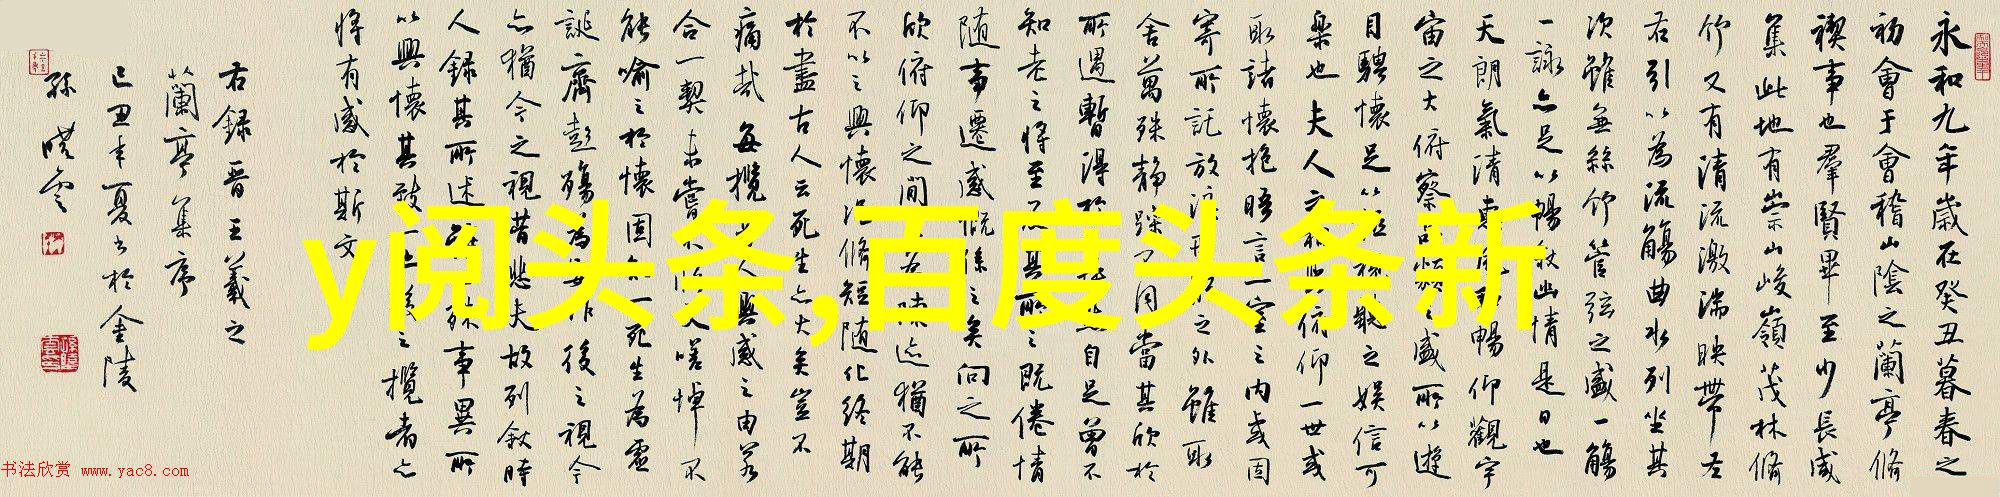 永和九年歲在癸丑暮春之
初會于會稽山陰之蘭亭脩
禊事也羣賢畢至少長咸
集此地有崇山峻嶺茂林脩
竹又有清流激湍映帶左
右引以為流觴曲水列坐其
次雖無絲竹管弦之盛一觴
一詠亦足以暢敘幽情是日也
天朗氣清惠風和暢仰觀宇
宙之大俯察品類之盛所以遊
目騁懷足以極視聽之娛信可
樂也夫人之相與俯仰一世或
取諸懷抱晤言一室之內或因
寄所託放浪形骸之外雖取
舍萬殊靜躁不同當其欣於
所遇暫得於己快然自足曾不
知老之將至及其所之既倦情
隨事遷感慨係之矣向之所
欣俯仰之間為陳迹猶不能
不以之興懷況脩短隨化終期
於盡古人云死生亦大矣豈不
痛哉每攬昔人興感之由若
合一契未嘗不臨文嗟悼不
能喻之於懷固知一死生為虛
誕齊彭殤為妄作後之視今
亦猶今之視昔悲夫故列敘時
人錄其所述雖世殊事異所
以興懷其致一也後之攬者亦
將有感於斯文
右錄晉王羲之
蘭亭集序
己丑年夏書於金陵
孫曉雲
y阅头条,百度头条新
书法欣赏 www.yac8.com